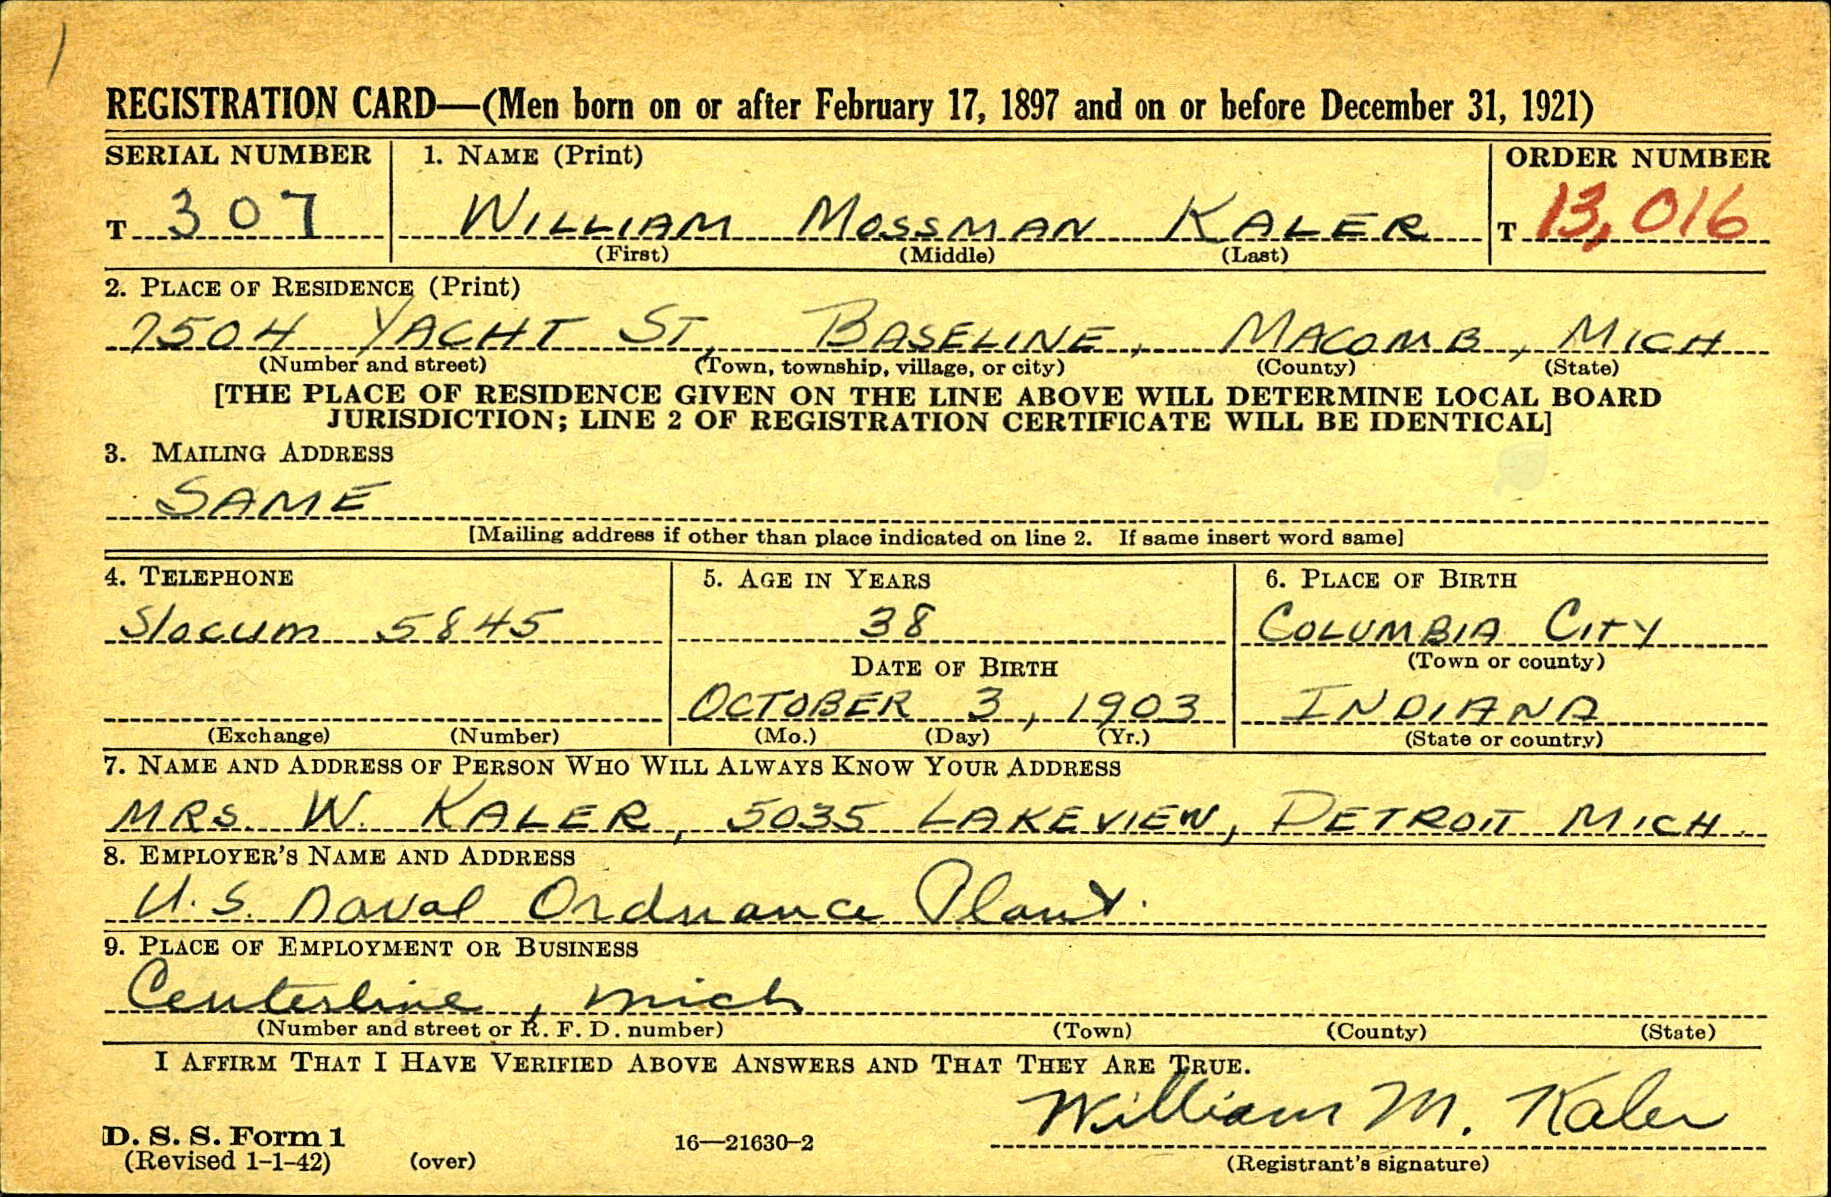 REGISTRATION CARD—(Men born on or after February 17, 1897 and on or before December 31, 1921)
SERIAL NUMBER 1. NAME (Print) ORDER NUMBER
T 307 WILLIAM MOSSMAN KALER T 13,016
(First) (Middle) (Last)
2. PLACE OF RESIDENCE (Print)
7504 YACHT ST, BASELINE, MACOMB, MICH
(Number and street) (Town, township, village, or city) (County) (State)
[THE PLACE OF RESIDENCE GIVEN ON THE LINE ABOVE WILL DETERMINE LOCAL BOARD
JURISDICTION; LINE 2 OF REGISTRATION CERTIFICATE WILL BE IDENTICAL]
3. MAILING ADDRESS
SAME
[Mailing address if other than place indicated on line 2. If same insert word same]
4. TELEPHONE 5. AGE IN YEARS 6. PLACE OF BIRTH
Slocum 5845 38 COLUMBIA CITY
DATE OF BIRTH (Town or county)
OCTOBER 3, 1903 INDIANA
(Exchange) (Number) (Mo.) (Day) (Yr.) (State or country)
7. NAME AND ADDRESS OF PERSON WHO WILL ALWAYS KNOW YOUR ADDRESS
MRS. W. KALER, 5035 LAKEVIEW, DETROIT MICH.
8. EMPLOYER'S NAME AND ADDRESS
U.S. Naval Ordnance Plant.
9. PLACE OF EMPLOYMENT OR BUSINESS
Centerline, Mich
(Number and street or R. F. D. number) (Town) (County) (State)
I AFFIRM THAT I HAVE VERIFIED ABOVE ANSWERS AND THAT THEY ARE TRUE.
William M. Kaler
D. S. S. Form 1 16—21630-2
(Revised 1-1-42) (over) (Registrant's signature)